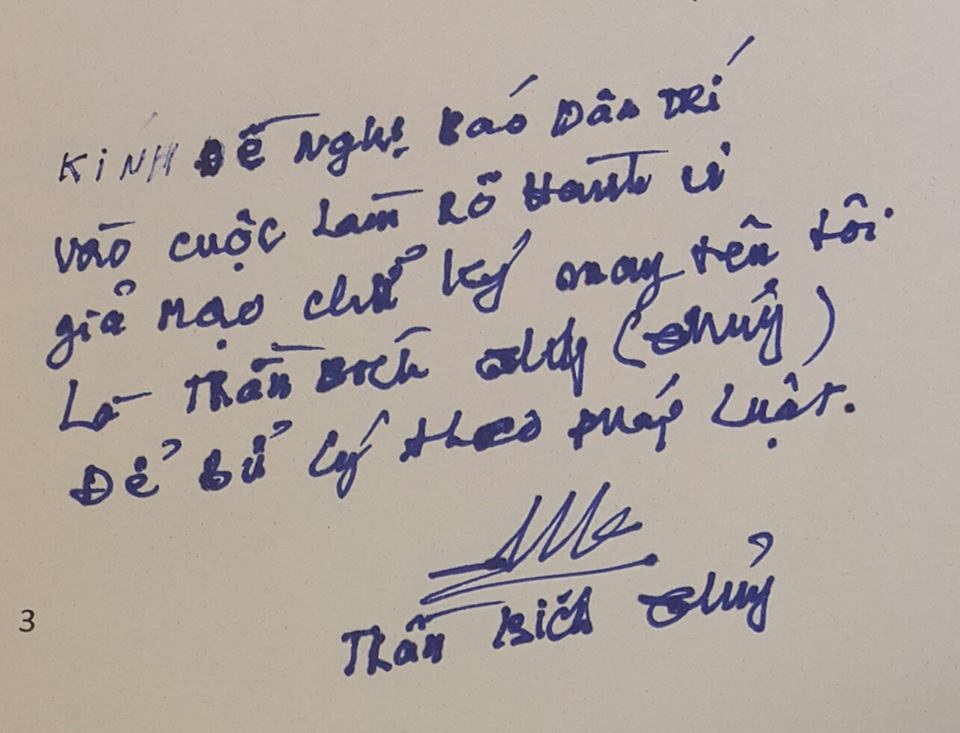 KíNH Đề Nghị Báo Dân Trí
vào cuộc Làm Rõ Hành vi
giả Mạo chữ ký mang tên tôi
Là Thân Bích Thuỷ (Thuỷ)
Để Sử Lý theo pháp Luật.
Thân Bích Thuỷ
3